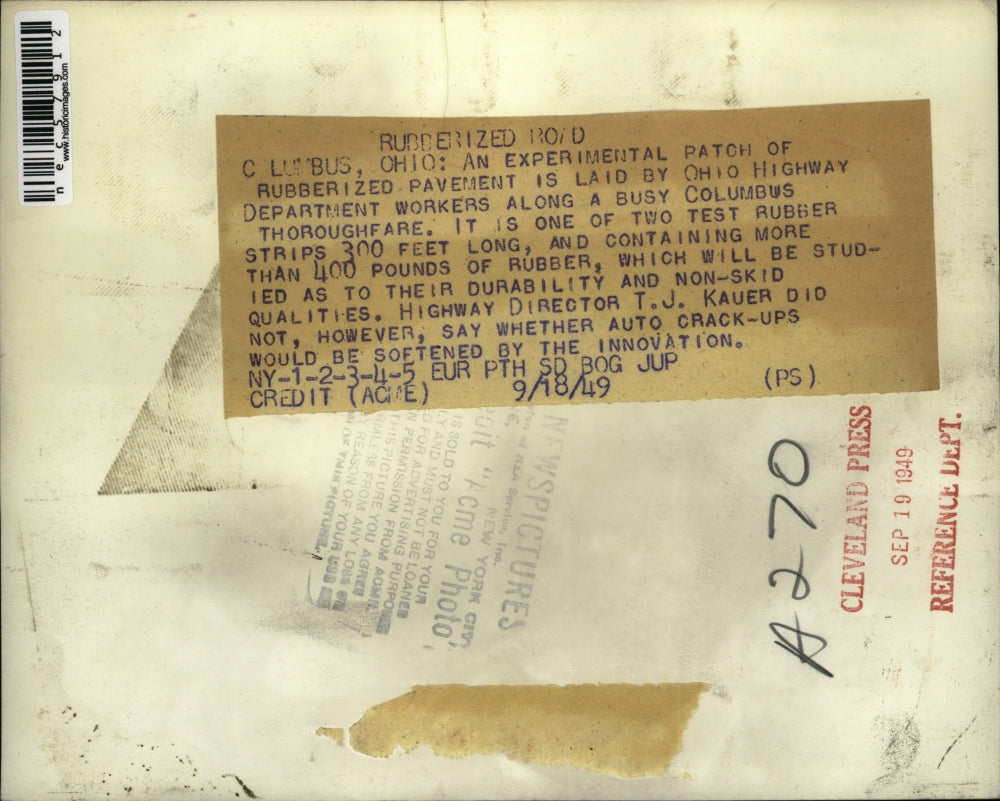 RUBBERIZED ROAD
COLUMBUS, OHIO: AN EXPERIMENTAL PATCH OF
RUBBERIZED PAVEMENT IS LAID BY OHIO HIGHWAY
DEPARTMENT WORKERS ALONG A BUSY COLUMBUS
THOROUGHFARE. IT IS ONE OF TWO TEST RUBBER
STRIPS 300 FEET LONG, AND CONTAINING MORE
THAN 400 POUNDS OF RUBBER, WHICH WILL BE STUD-
IED AS TO THEIR DURABILITY AND NON-SKID
QUALITIES. HIGHWAY DIRECTOR T.J. KAUER DID
NOT, HOWEVER, SAY WHETHER AUTO CRACK-UPS
WOULD BE SOFTENED BY THE INNOVATION.
NY-1-2-3-4-5 EUR PTH SD BOG JUP
CREDIT (ACME) 9/18/49 (PS)
nec57912
www.historicimages.com
NEWSPICTURES
of NEA Service, Inc.
NEW YORK CITY
"Acme Photo"
IS SOLD TO YOU FOR YOUR
LY AND MUST NOT BE LOANED
D FOR ADVERTISING PURPO
N PERMISSION FROM ACME.
THIS PICTURE YOU AGREE
RMLESS FROM ANY LOSS OR
Y REASON OF YOUR USE
OF THIS PICTURE.
A270
CLEVELAND PRESS
SEP 19 1949
REFERENCE DEPT.